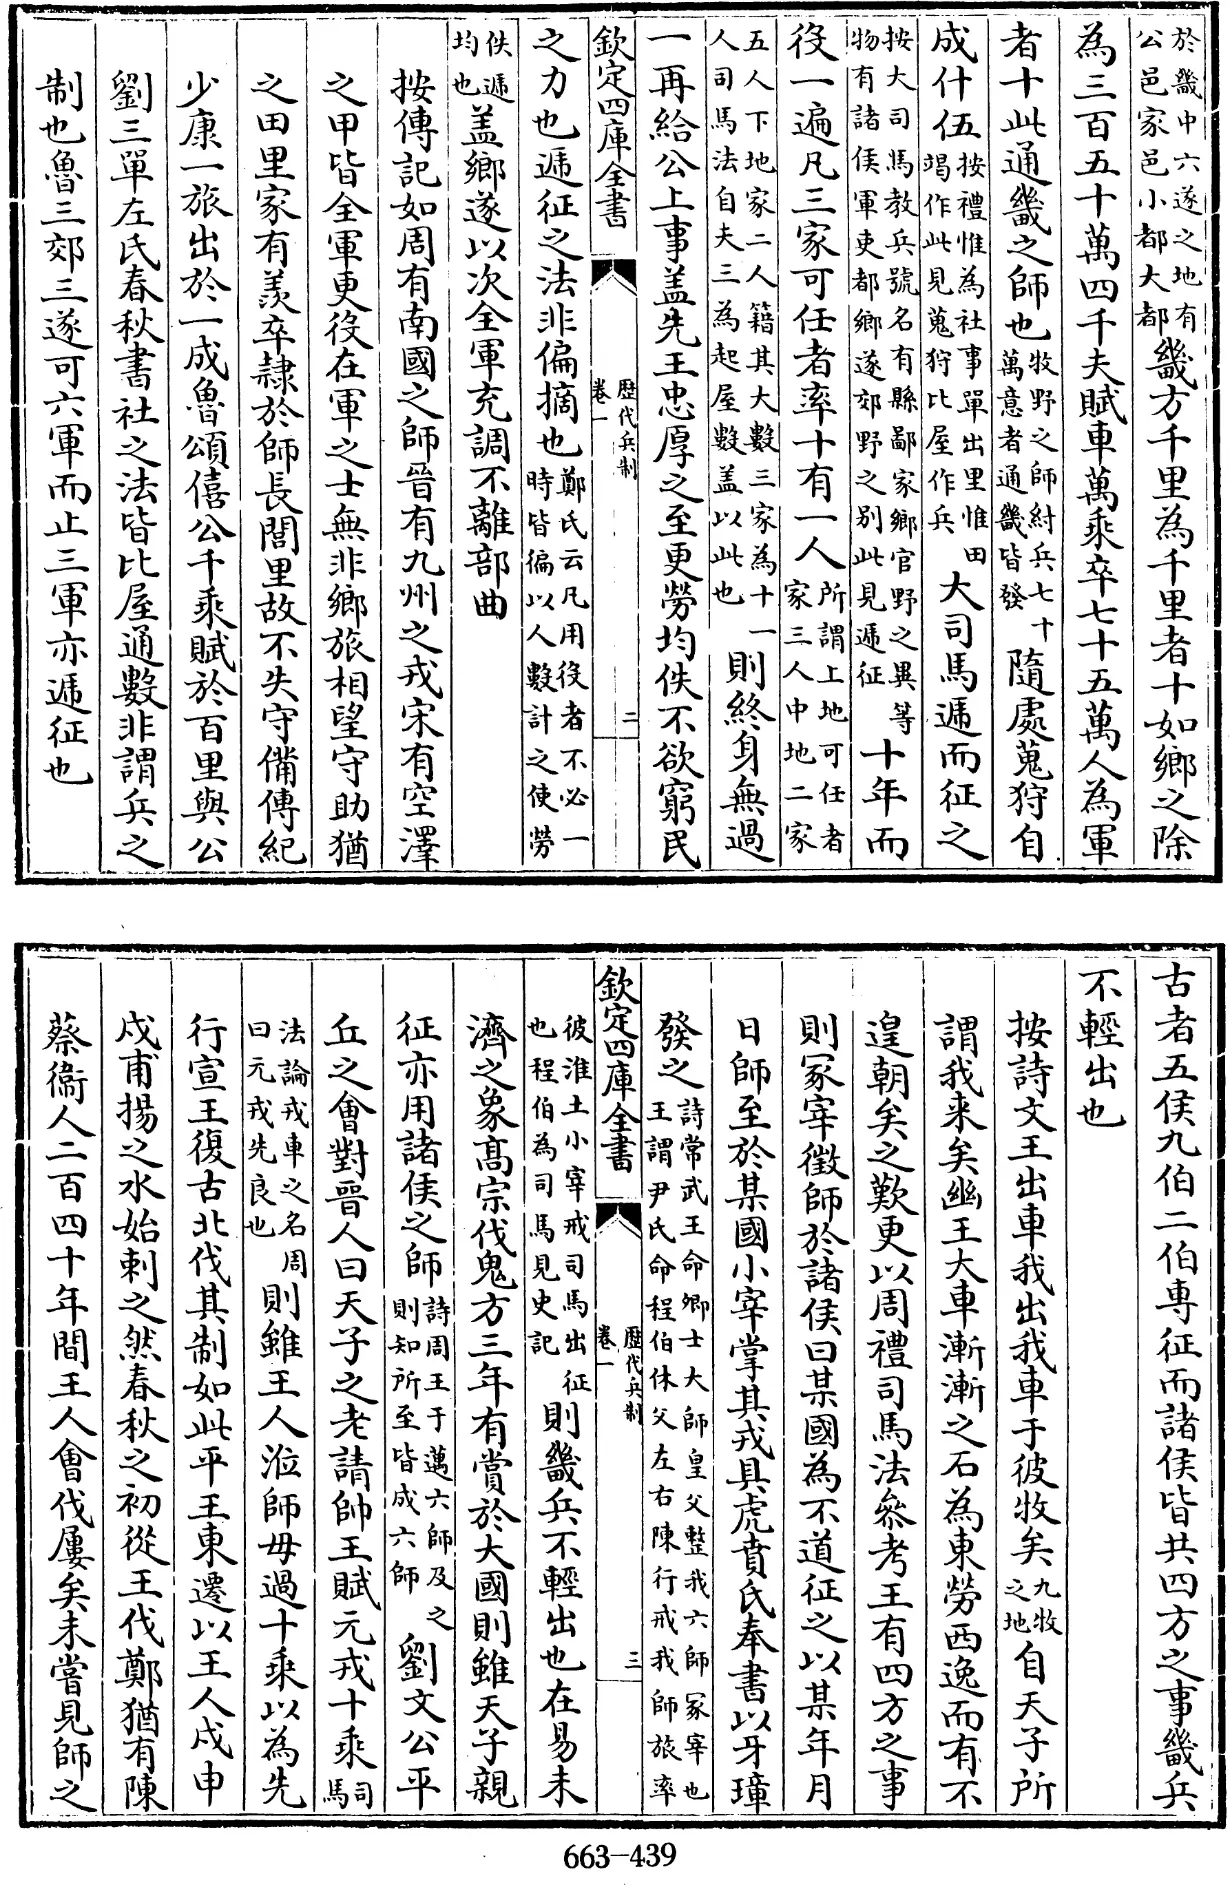 於畿中六遂之地有公邑家邑小都大都畿方千里為千里者十如鄉之除
為三百五十萬四千夫賦車萬乘卒七十五萬人為軍
者十此通畿之師也牧野之師紂兵七十萬意者通畿皆發隨處蒐狩自
成什伍按禮惟為社事單出里惟田竭作此見蒐狩比屋作兵大司馬遞而征之
按大司馬教兵號名有縣鄙家鄉官野之異等物有諸侯軍吏都鄉遂郊野之別此見遞征十年而
役一遍凡三家可任者率十有一人所謂上地可任者家三人中地二家
五人下地家二人籍其大數三家為十一人司馬法自夫三為起屋數盖以此也則終身無過
一再給公上事盖先王忠厚之至更勞均佚不欲窮民
欽定四庫全書
歷代兵制
卷一
二
之力也遞征之法非偏摘也鄭氏云凡用役者不必一時皆徧以人數計之使勞
佚遞均也盖鄉遂以次全軍充調不離部曲
按傳記如周有南國之師晉有九州之戎宋有空澤
之甲皆全軍更役在軍之士無非鄉旅相望守助猶
之田里家有羨卒隸於師長閭里故不失守備傳紀
少康一旅出於一成魯頌僖公千乘賦於百里與公
劉三單左氏春秋書社之法皆比屋通數非謂兵之
制也魯三郊三遂可六軍而止三軍亦遞征也
古者五侯九伯二伯專征而諸侯皆共四方之事畿兵
不輕出也
按詩文王出車我出我車于彼牧矣九牧之地自天子所
謂我來矣幽王大車漸漸之石為東勞西逸而有不
遑朝矣之歎更以周禮司馬法參考王有四方之事
則冢宰徵師於諸侯曰某國為不道征之以某年月
日師至於某國小宰掌其戎具虎賁氏奉書以牙璋
發之詩常武王命卿士大師皇父整我六師冢宰也王謂尹氏命程伯休父左右陳行戒我師旅率
欽定四庫全書
歷代兵制
卷一
三
彼淮土小宰戒司馬出征也程伯為司馬見史記則畿兵不輕出也在易未
濟之象高宗伐鬼方三年有賞於大國則雖天子親
征亦用諸侯之師詩周王于邁六師及之則知所至皆成六師劉文公平
丘之會對晉人曰天子之老請帥王賦元戎十乘司馬
法論戎車之名周曰元戎先良也則雖王人涖師毋過十乘以為先
行宣王復古北伐其制如此平王東遷以王人戍申
戍甫揚之水始刺之然春秋之初從王伐鄭猶有陳
蔡衞人二百四十年間王人會伐屢矣未嘗見師之
663-439